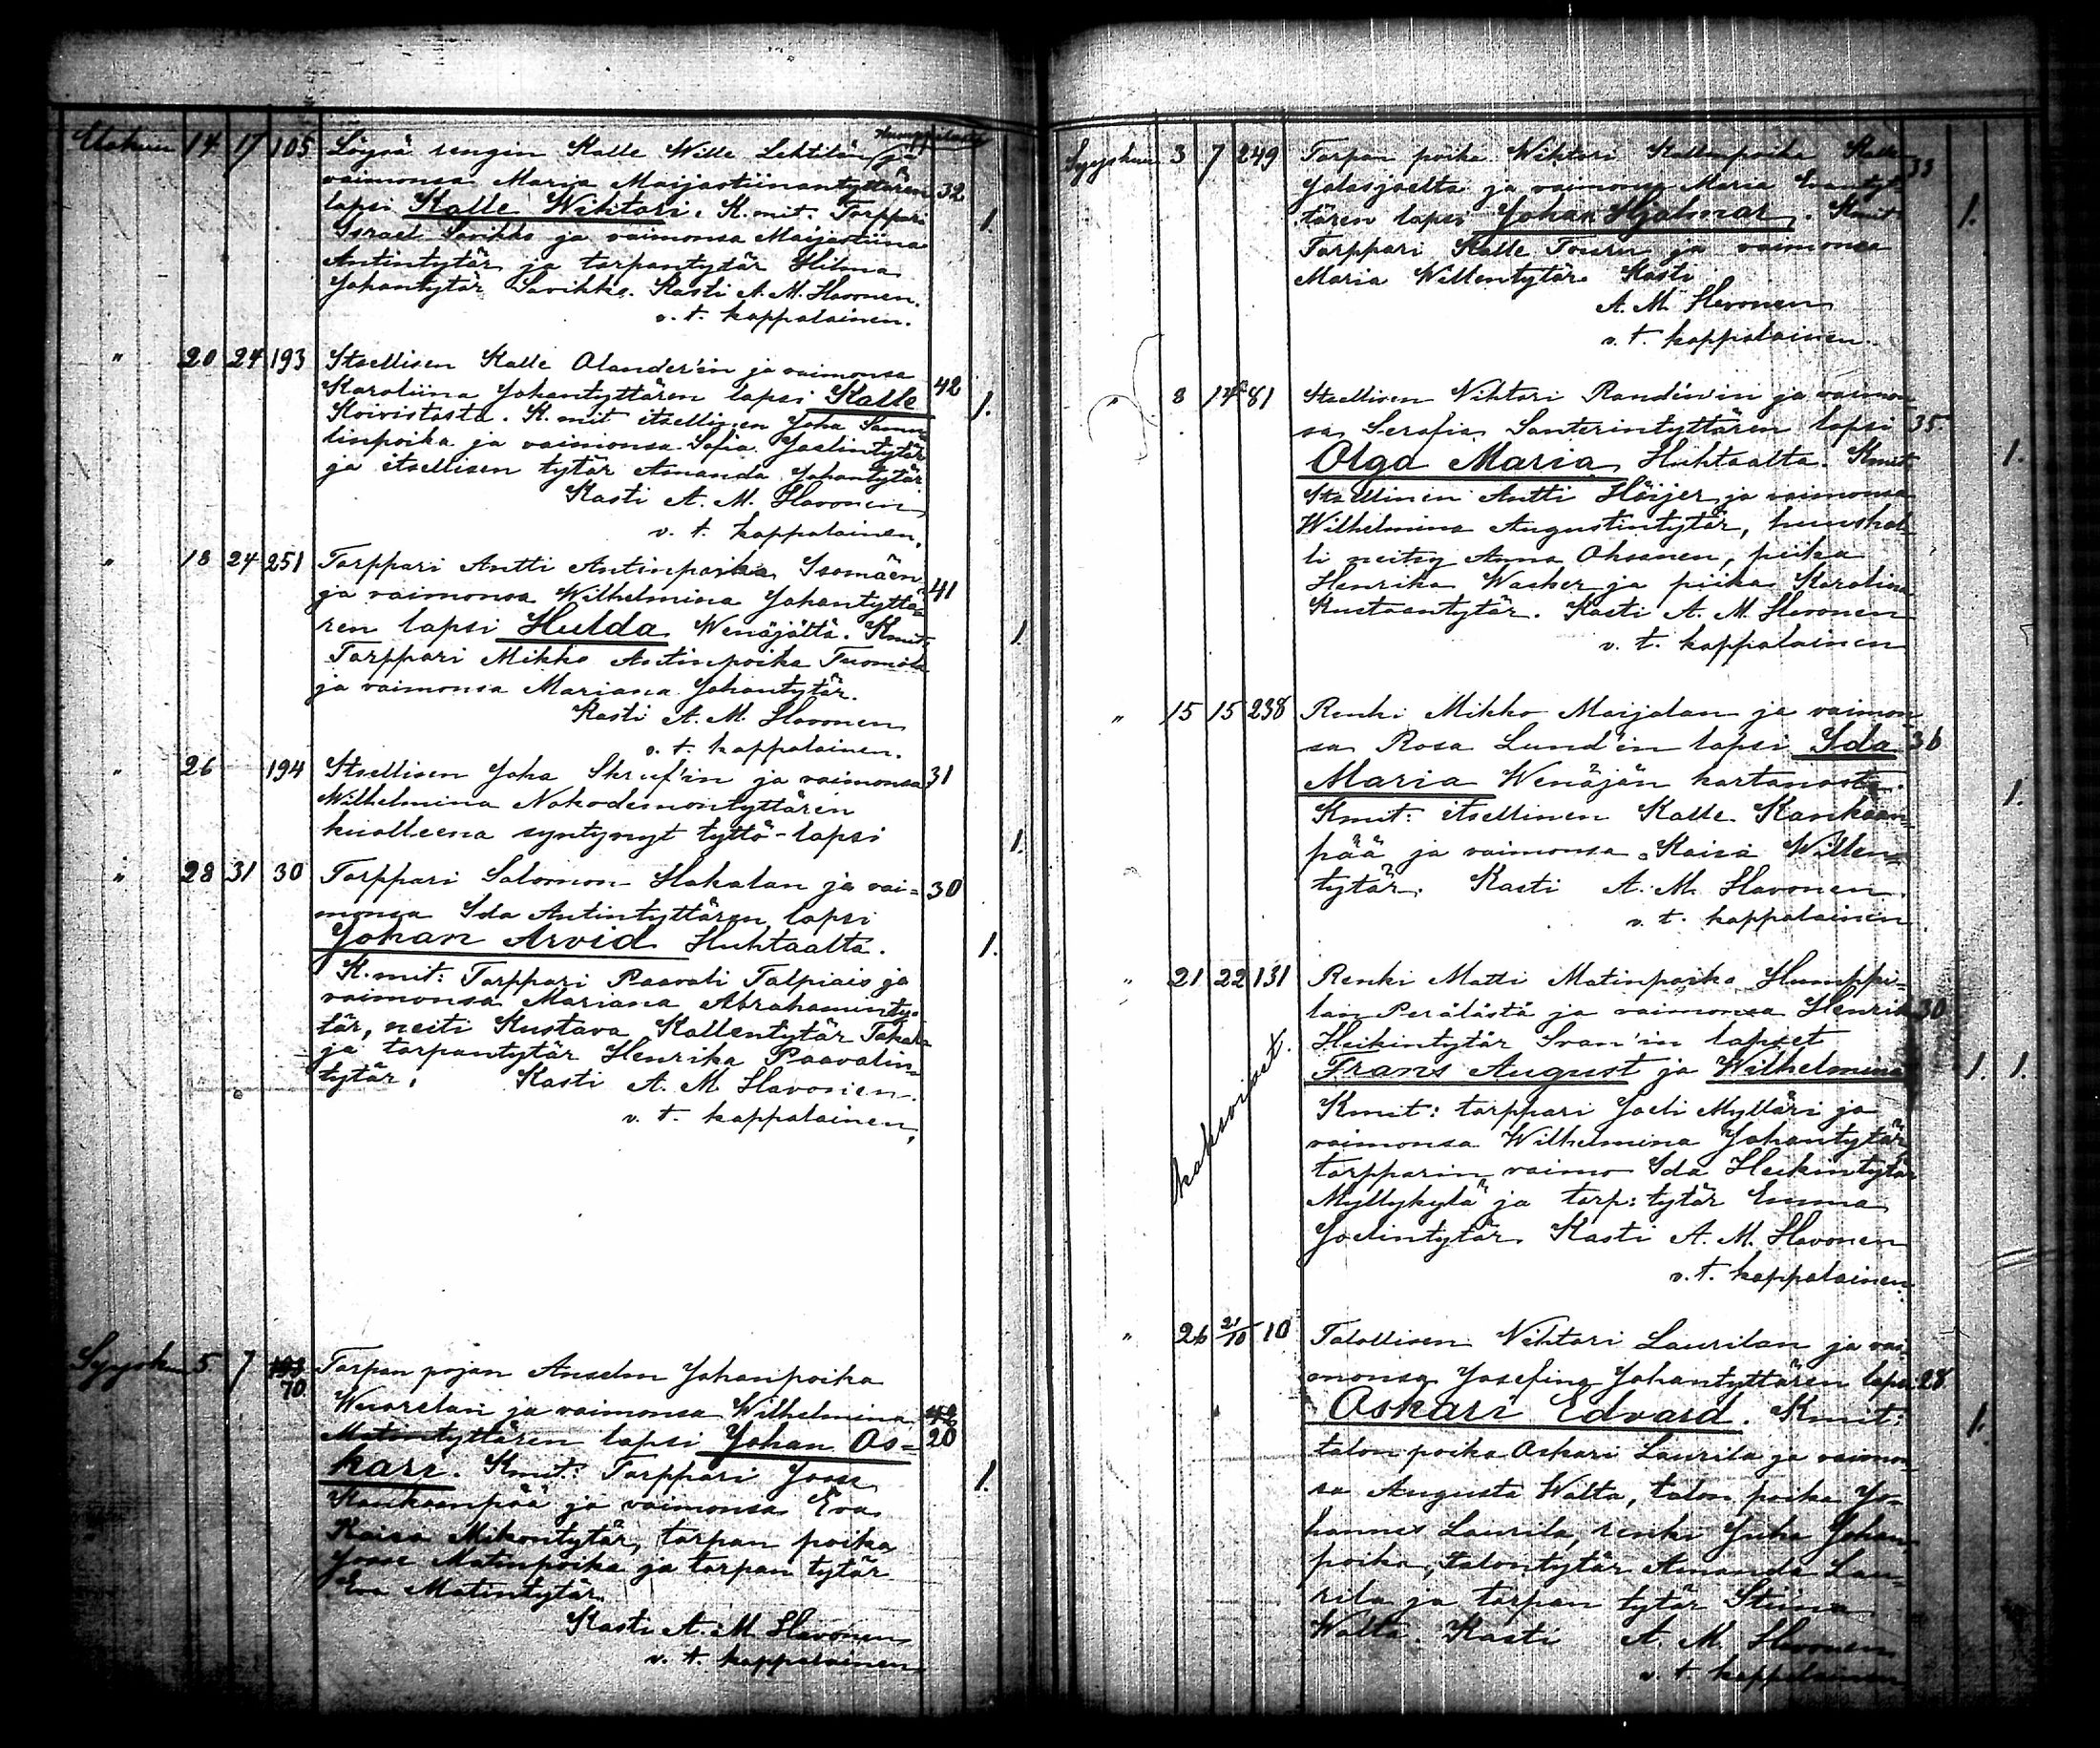 Elokuu 14 17 105 Löysä rengin Kalle Wille Lehtilän ja
vaimonsa Maria Maijastiinantyttären 32
lapsi Kalle Wihtori. K.mit. Torppari 1.
Israel Savikko ja vaimonsa Maijastiina
Antintytär ja torpantytär Hilma
Johantytär Savikko. Kasti A. M. Havonen.
v. t. kappalainen.
" 20 24 193 Itsellisen Kalle Olander'in ja vaimonsa
Karoliina Johantyttären lapsi Kalle 42 1.
Koivistosta. K. mit itsellinen Joha Samu
linpoika ja vaimonsa Sofia Joelintytär
ja itsellisen tytär Amanda Johantytär
Kasti A. M. Havonen
v. t. kappalainen.
" 18 24 251 Torppari Antti Antinpoika Isomäen
ja vaimonsa Wilhelmina Johantyttä= 41
ren lapsi Hulda Wenäjältä. Kmit. 1.
Torppari Mikko Antinpoika Tuomola
ja vaimonsa Mariana Johantytär.
Kasti A. M. Havonen
v. t. kappalainen.
" 26 194 Itsellisen Joha Skruf'in ja vaimonsa 31
Wilhelmina Nokodemontyttären
kuolleena syntynyt tyttö-lapsi 1.
" 28 31 30 Torppari Salomon Hakalan ja vai= 30
monsa Ida Antintyttären lapsi
Johan Arvid Huhtaalta. 1.
K.mit: Torppari Paavali Talpiais ja
vaimonsa Mariana Abrahaminty=
tär, neiti Kustava Kallentytär
ja torpantytär Henrika Paavalin=
tytär. Kasti A. M Havonen.
v. t. kappalainen.
Syysku 5 7 193 70 Torpan pojan Anselm Johanpoika
Wuorelan ja vaimonsa Wilhelmina 42
Matintyttären lapsi Johan Os= 20
kari. Kmit: Torppari Joose 1.
Kankaanpää ja vaimonsa Eva
Kaisa Mikontytär, torpan poika
Joose Matinpoika ja torpan tytär
Eva Matintytär.
Kasti A. M. Havonen
v. t. kappalainen
Syyskuu 3 7 249 Torpan poika Wihtori Kallenpoika 33
Jalasjoelta ja vaimonsa Maria Evantyt=
tären lapsi Johan Hjalmar. Kmit 1.
Torppari Kalle Touru ja vaimonsa
Maria Willentytär. Kasti
A. M. Havonen
v. t. kappalainen.
" 8 14 81 Itsellisen Vihtori Randén'in ja vaimon
sa Serafia Santerintyttären lapsi 35
Olga Maria Huhtaalta. Kmit. 1.
Itsellinen Antti Höijer ja vaimonsa
Wilhelmina Augustintytär, huushol=
li neitsy Anna Oksanen, piika
Henrika Wacker ja piika Karolina
Kustaantytär. Kasti A. M. Havonen
v. t. kappalainen
" 15 15 238 Renki Mikko Maijalan ja vaimon
sa Rosa Lund'in lapsi Ida 36
Maria Wenäjän kartanosta. 1.
Kmit: itsellinen Kalle Kankaan=
pää ja vaimonsa Kaisa Willen=
tytär. Kasti A. M. Havonen.
v. t. kappalainen
" 21 22 131 Renki Matti Matinpoika Humppi=
lan Perälästä ja vaimonsa Henrika 30
Heikintytär Svan'in lapset
Kaksoiset. Frans August ja Wilhelmina 1. 1.
Kmit: torppari Joeli Mylläri ja
vaimonsa Wilhelmina Johantytär
torpparin vaimo Ida Heikintytär
Myllykylä ja torp: tytär Emma
Joelintytär. Kasti A. M. Havonen
v. t. kappalainen.
" 26 21/10 10 Talollisen Vihtori Laurilan ja vai
monsa Josefina Johantyttären lapsi 28
Oskari Edvard. Kmit: 1.
talon poika Oskari Laurila ja vaimon
sa Augusta Walta, talon poika Jo=
hannes Laurila, renki Juha Johan
poika, talontytär Amanda Lau=
rila ja torpan tytär Stiina
Walta. Kasti A. M. Havonen
v. t. kappalainen